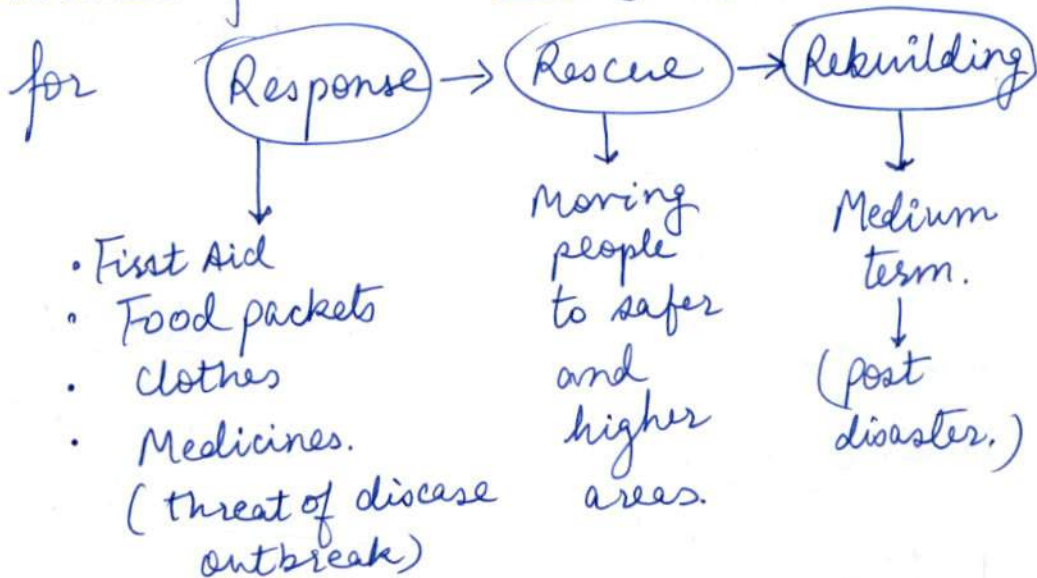 for Response → Rescue → Rebuilding
· First Aid
· Food packets
· clothes
· Medicines.
(threat of disease
outbreak)
Moving
people
to safer
and
higher
areas.
Medium
term.
(post
disaster.)